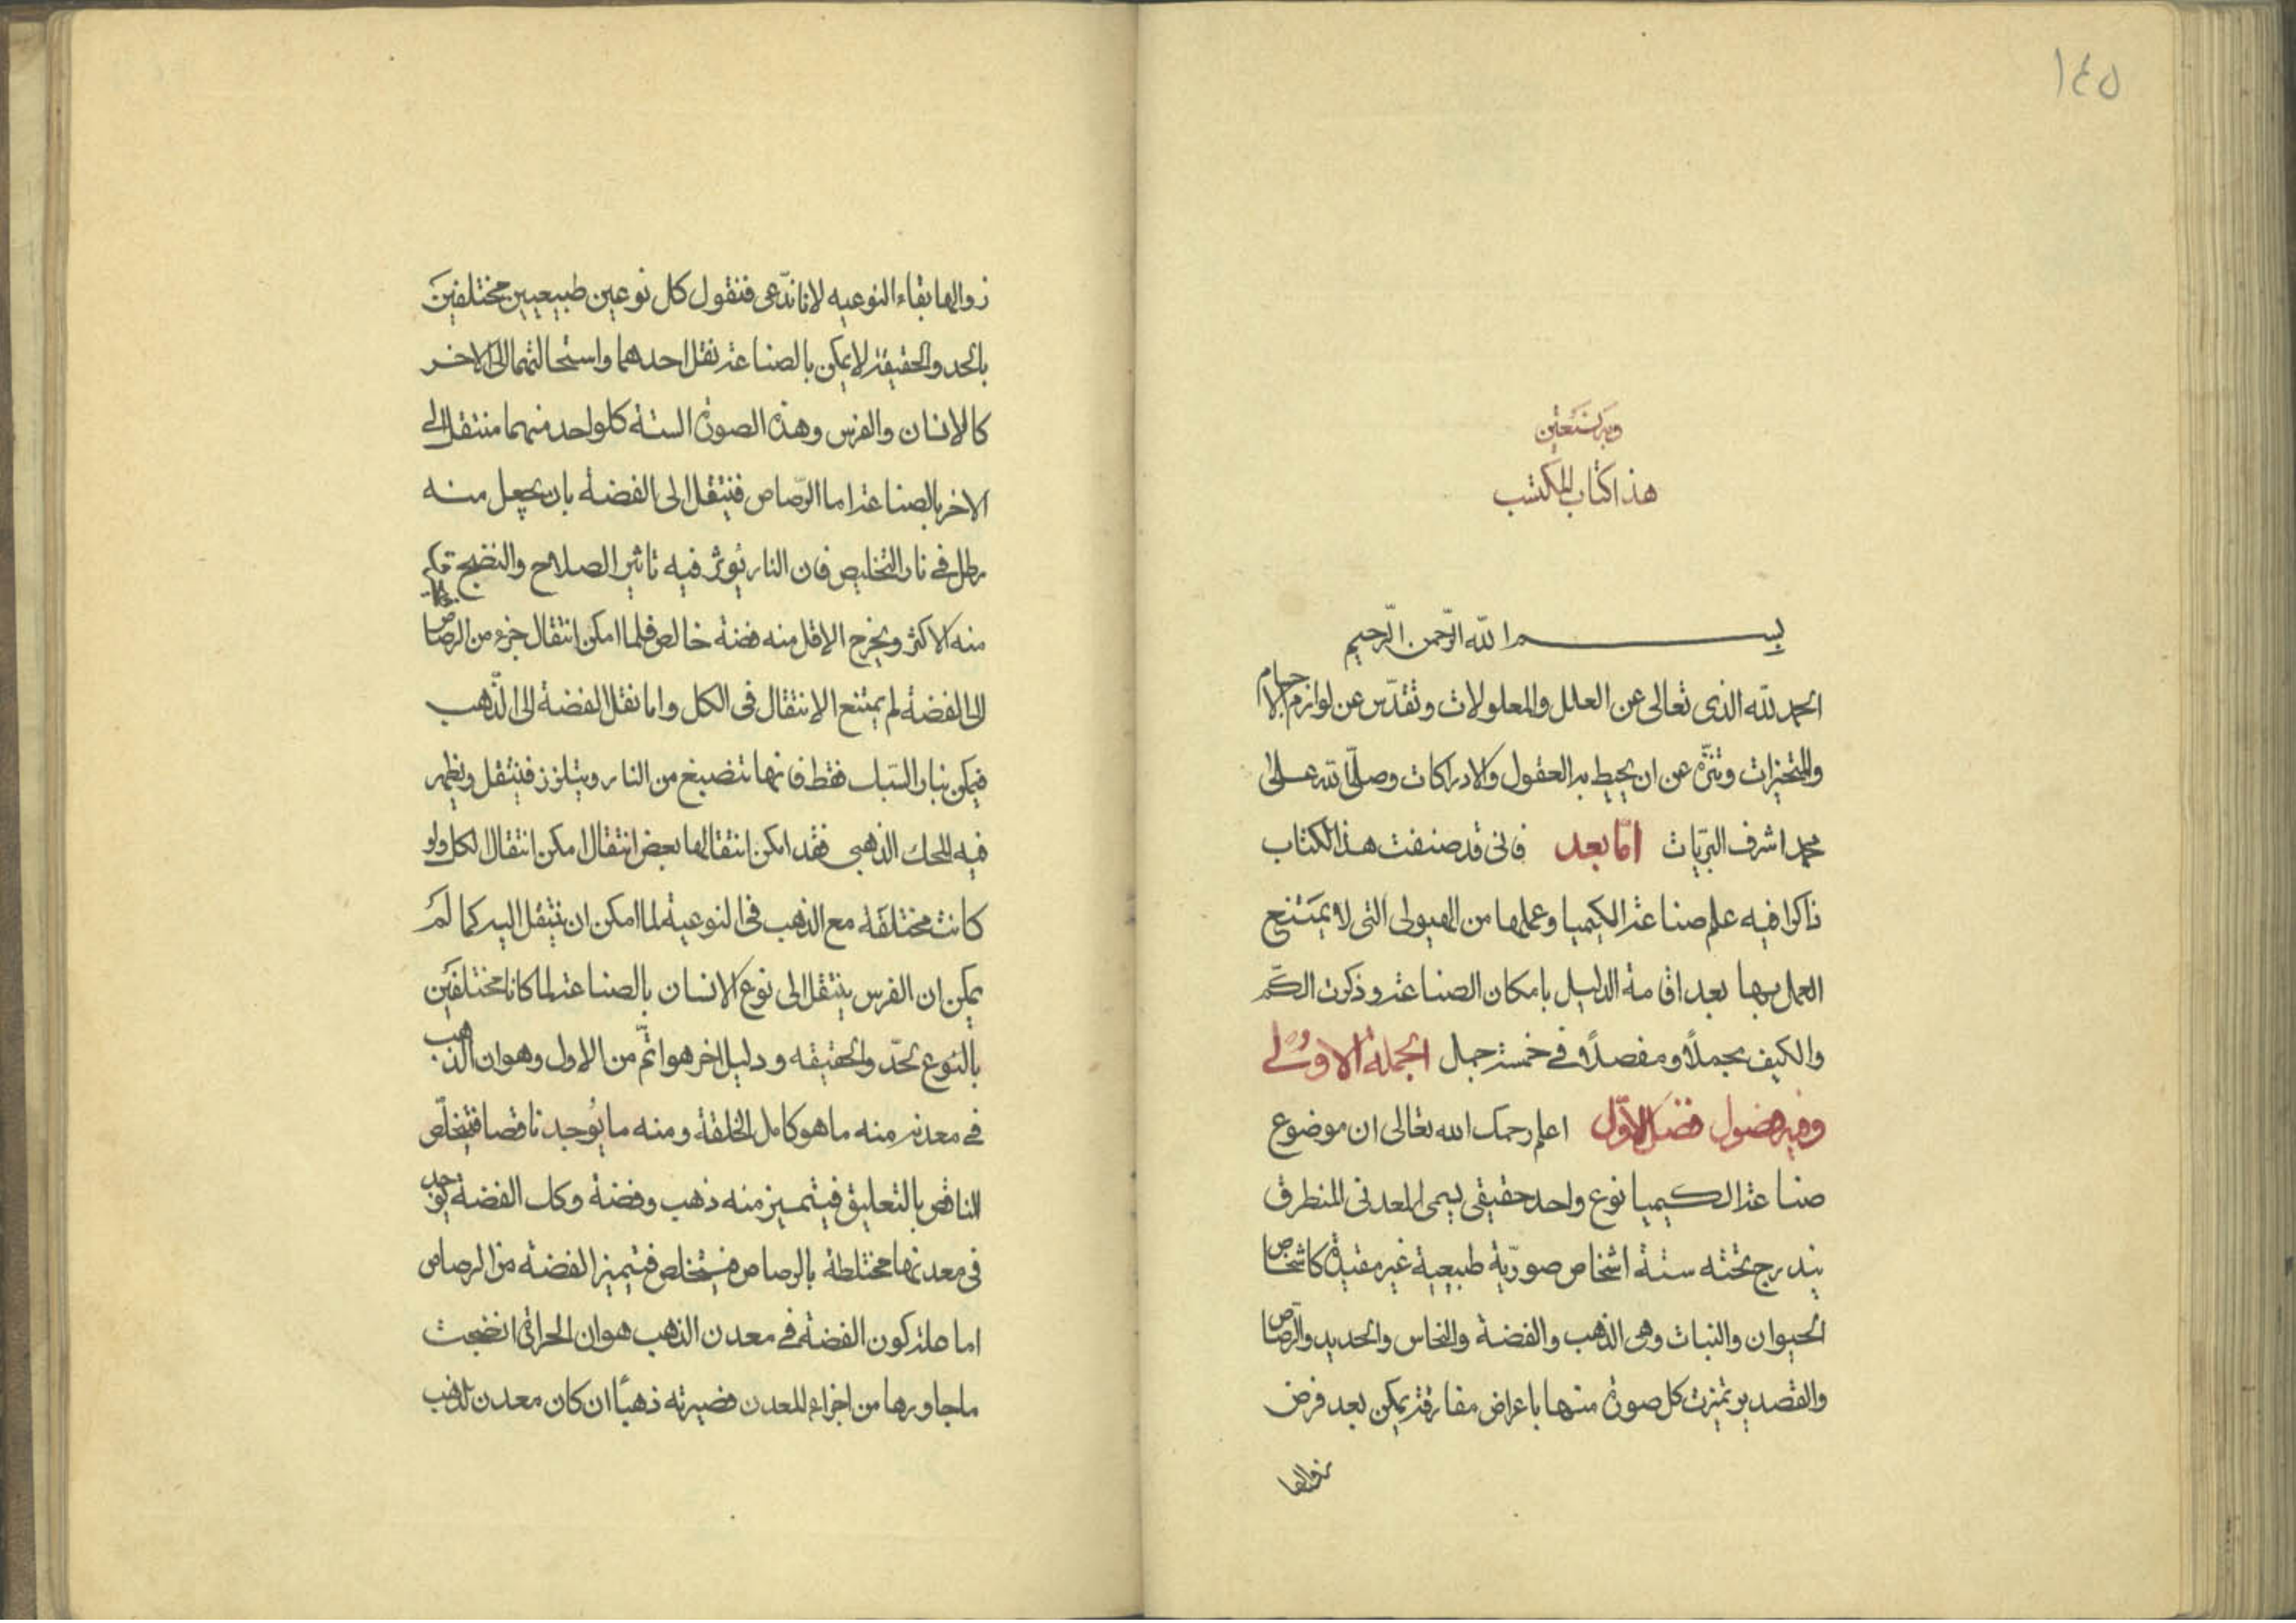 ١٤٥
وبه نستعين
هذا كتاب المكتسب
بسم الله الرّحمن الرّحيم
الحمد لله الذى تعالى عن العلل والمعلولات وتقدّس عن لوازم الاجسام
والمتحيزات وتنزّه عن ان يحيط به العقول والادراكات وصلّى الله على
محمد اشرف البريّات امّا بعد فانى قد صنفت هذا الكتاب
ذاكرا فيه علم صناعة الكيميا وعملها من الهيولى التى لا يمتنع
العمل بها بعد اقامة الدليل بامكان الصناعة وذكرت الكّم
والكيف مجملاً ومفصلاً فى خمسة جمل الجملة الاوُلى
وفيه فصول فصل الاوّل اعلم رحمك الله تعالى ان موضوع
صناعة الكيميا نوع واحد حقيقى يسمى المعدنى المنطرق
يندرج تحته ستة اشخاص صوريّة طبيعية غير مقيدة كاشخاص
الحيوان والنبات وهى الذهب والفضة والنحاس والحديد والرّصاص
والقصدير تميزت كل صورة منها باعراض مفارقة يمكن بعد فرض
زوالها
زوالها بقاء النوعيه لانا ندّعى فنقول كل نوعين طبيعيين مختلفين
بالحد والحقيقة لا يمكن بالصناعة نقل احدهما واستحالتهما الى الاخر
كالانسان والفرس وهذه الصورة الستة كلواحد منهما منتقل الى
الاخر بالصناعة اما الرّصاص فنيتقل الى الفضة بان يجعل منه
رطل فى نار التخليص فان النار يؤثر فيه تاثير الصلاح والنضج
منه الاكثر ويخرج الاقل منه فضة خالص فلما امكن انتقال جزء من الرصاص
الى الفضة لم يمتنع الانتقال فى الكل واما نقل الفضة الى الذّهب
فيمكن بنار السّباك فقط فانها تنضبغ من النار ويتلزز فنيثقل ويظهر
فيه للمحك الذهبى فقد امكن انتقالها بعض انتقال امكن انتقال الكل ولو
كانت مختلفة مع الذهب فى النوعية لما امكن ان ينتقل اليه كما لم
يمكن ان الفرس ينتقل الى نوع الانسان بالصناعة لما كانا مختلفين
بالنوع لحدّ والحقيقه ودليل اخر هو اتمّ من الاول وهو ان الذهب
فى معدنه منه ما هو كامل الخلقة ومنه ما يوُجد ناقصا فيتخلّص
الناقص بالتعليق فيتميز منه ذهب وفضة وكك الفضة يوجد
فى معدنها مختلطة بالرصاص فيستخلص فيتميز الفضة من الرصاص
اما علة كون الفضة فى معدن الذهب هو ان الحرارة انضجت
ما جاورها من اجزاء المعدن فصيرته ذهبًا ان كان معدن الذهب